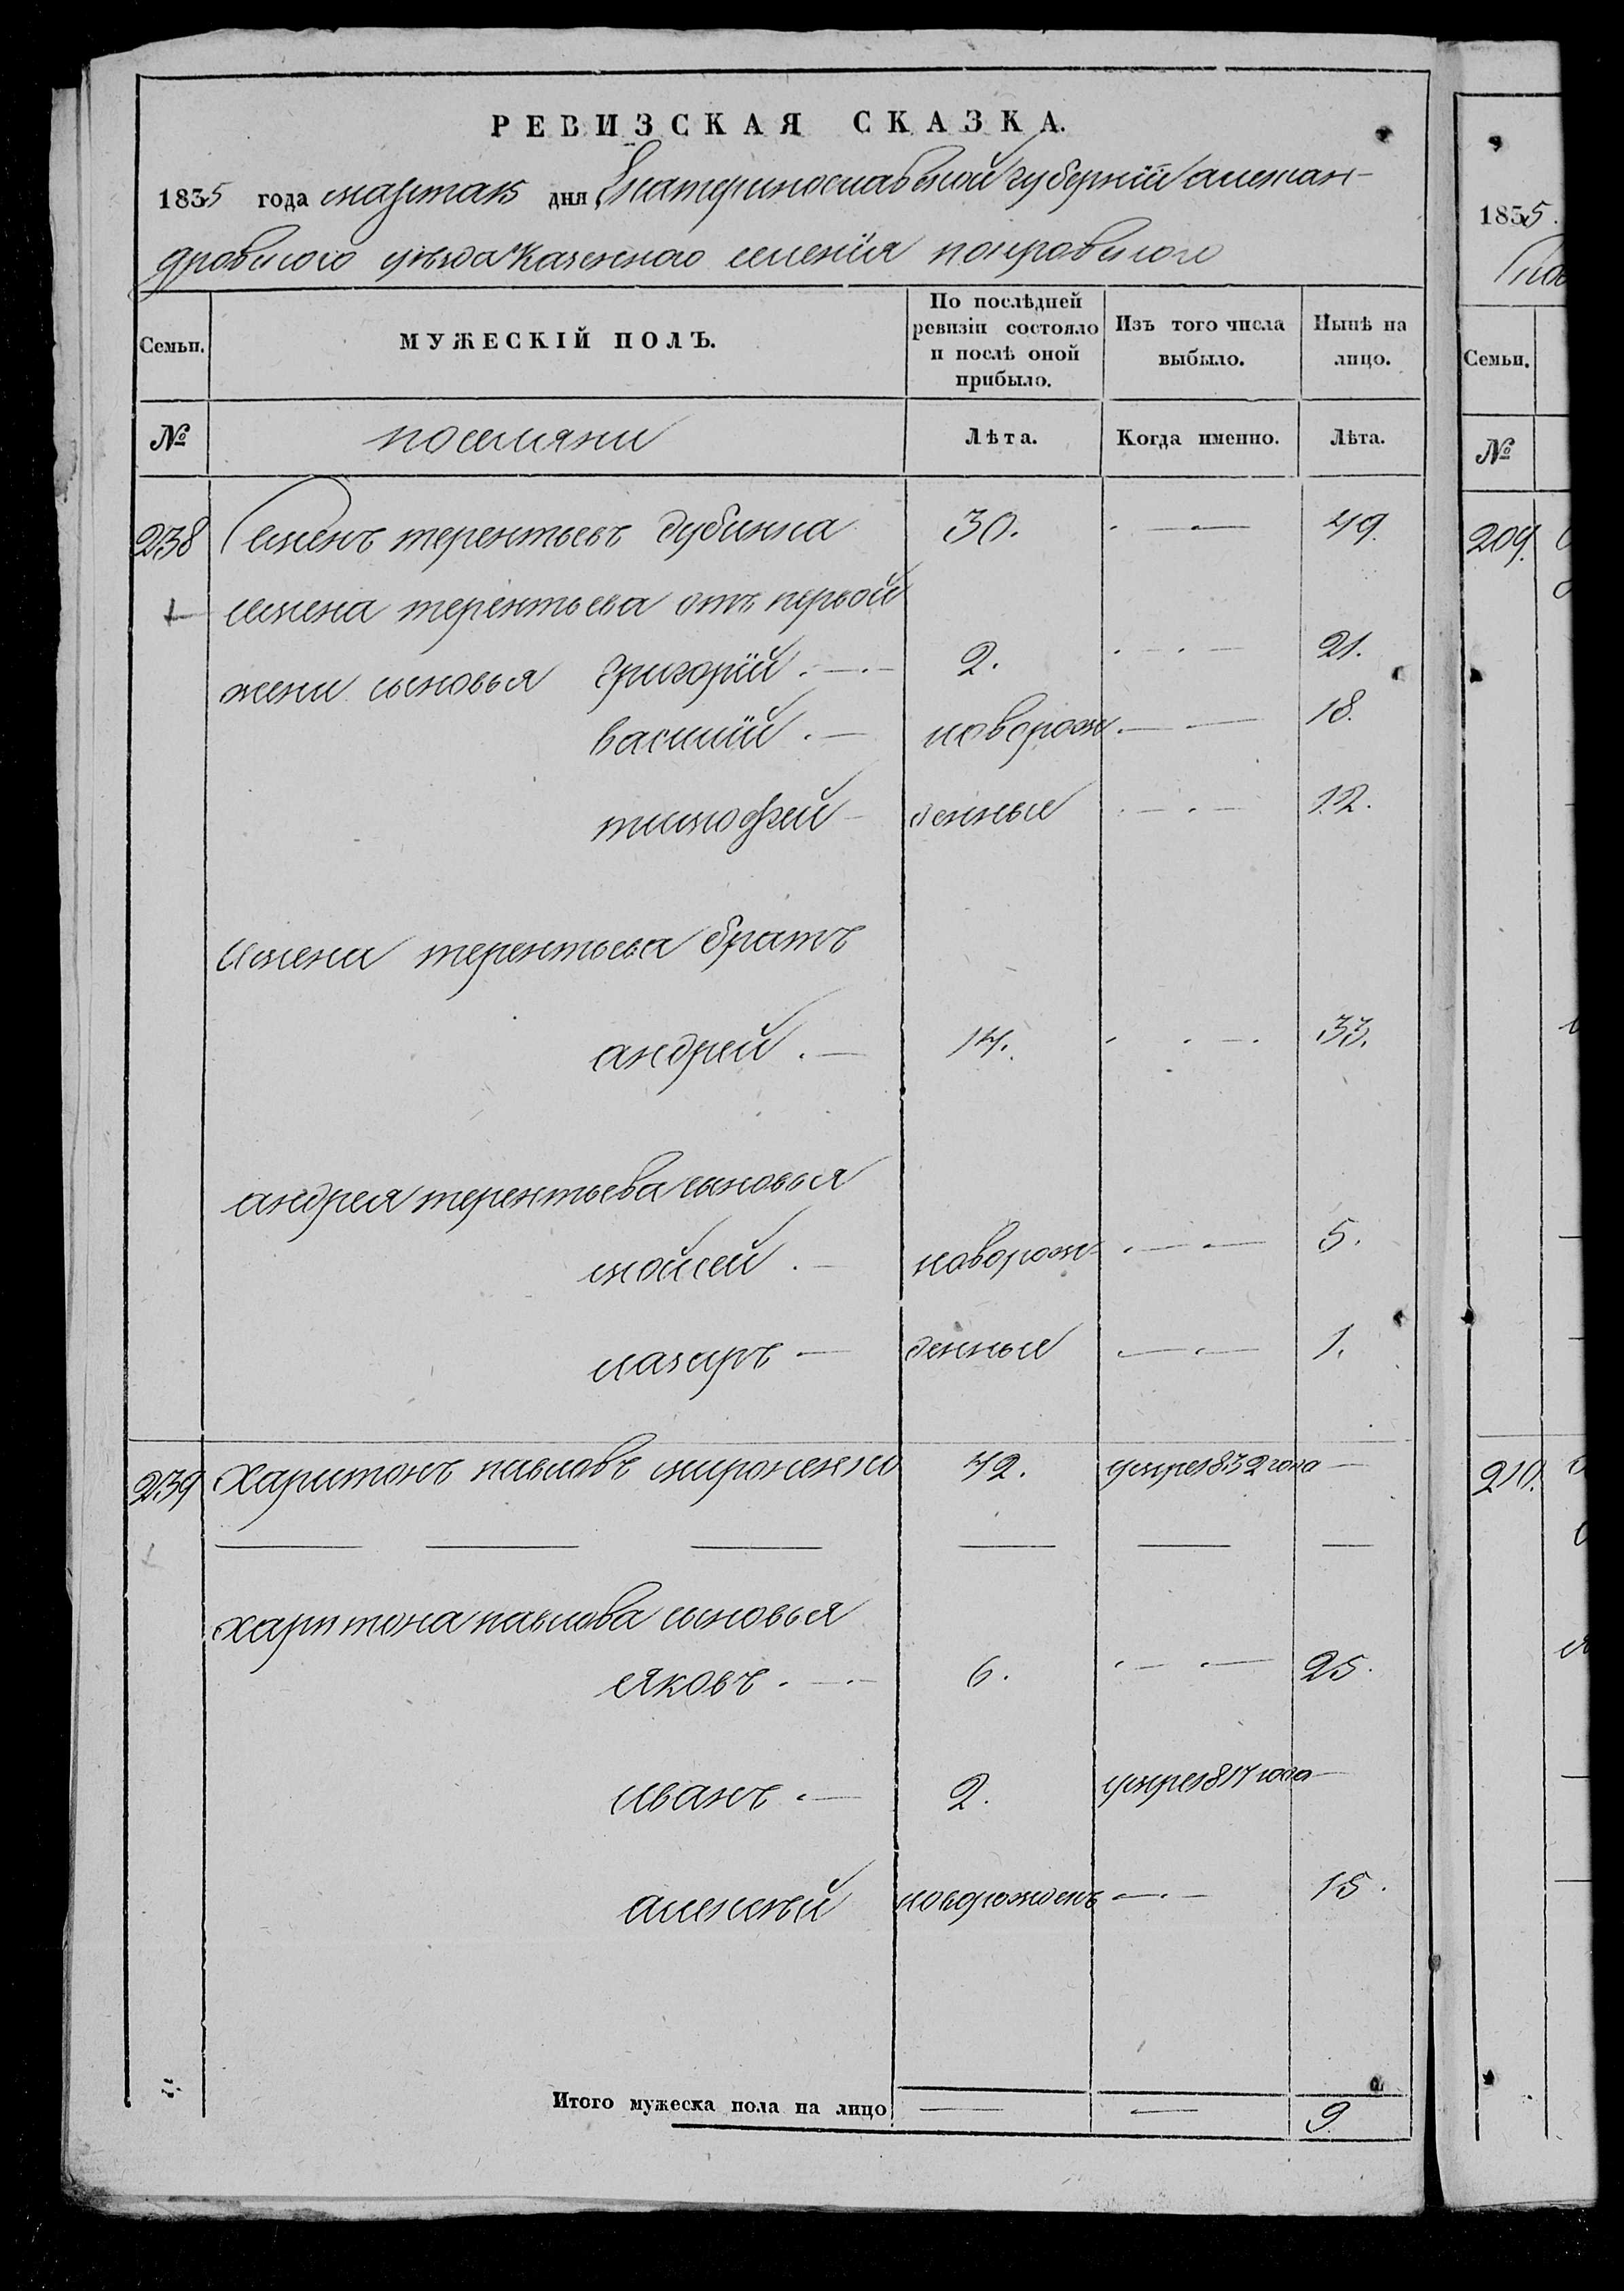 РЕВИЗСКАЯ СКАЗКА.
1835 года марта 15 дня Екатеринославской губернiи алексан-
дровского уезда Казенного селенiя покровского
Семьи. МУЖЕСКIЙ ПОЛЪ. По послѣдней ревизiи состояло и послѣ оной прибыло. Изъ того числа выбыло. Нынѣ на лицо.
№ поселяни Лѣта. Когда именно. Лѣта.
238 Семенъ терентьевъ дубинка 30. 49.
семена терентьева отъ первой
жени сыновья григорiй 2. 21.
василiй новорож 18.
тимофей денные 12.
Семена терентьева братъ
андрей 14. 33.
андрея терентьева сыновья
мойсей новорож- 5.
лазарь денные 1.
239 Харитонъ павловъ мироненко 42. умре 832 года
харитона павлова сыновья
яковъ 6. 25.
иванъ 2. умре 817 года
алексѣй новорожденъ 15.
Итого мужеска пола на лицо 9
1835.
Семьи.
№
209.
210.